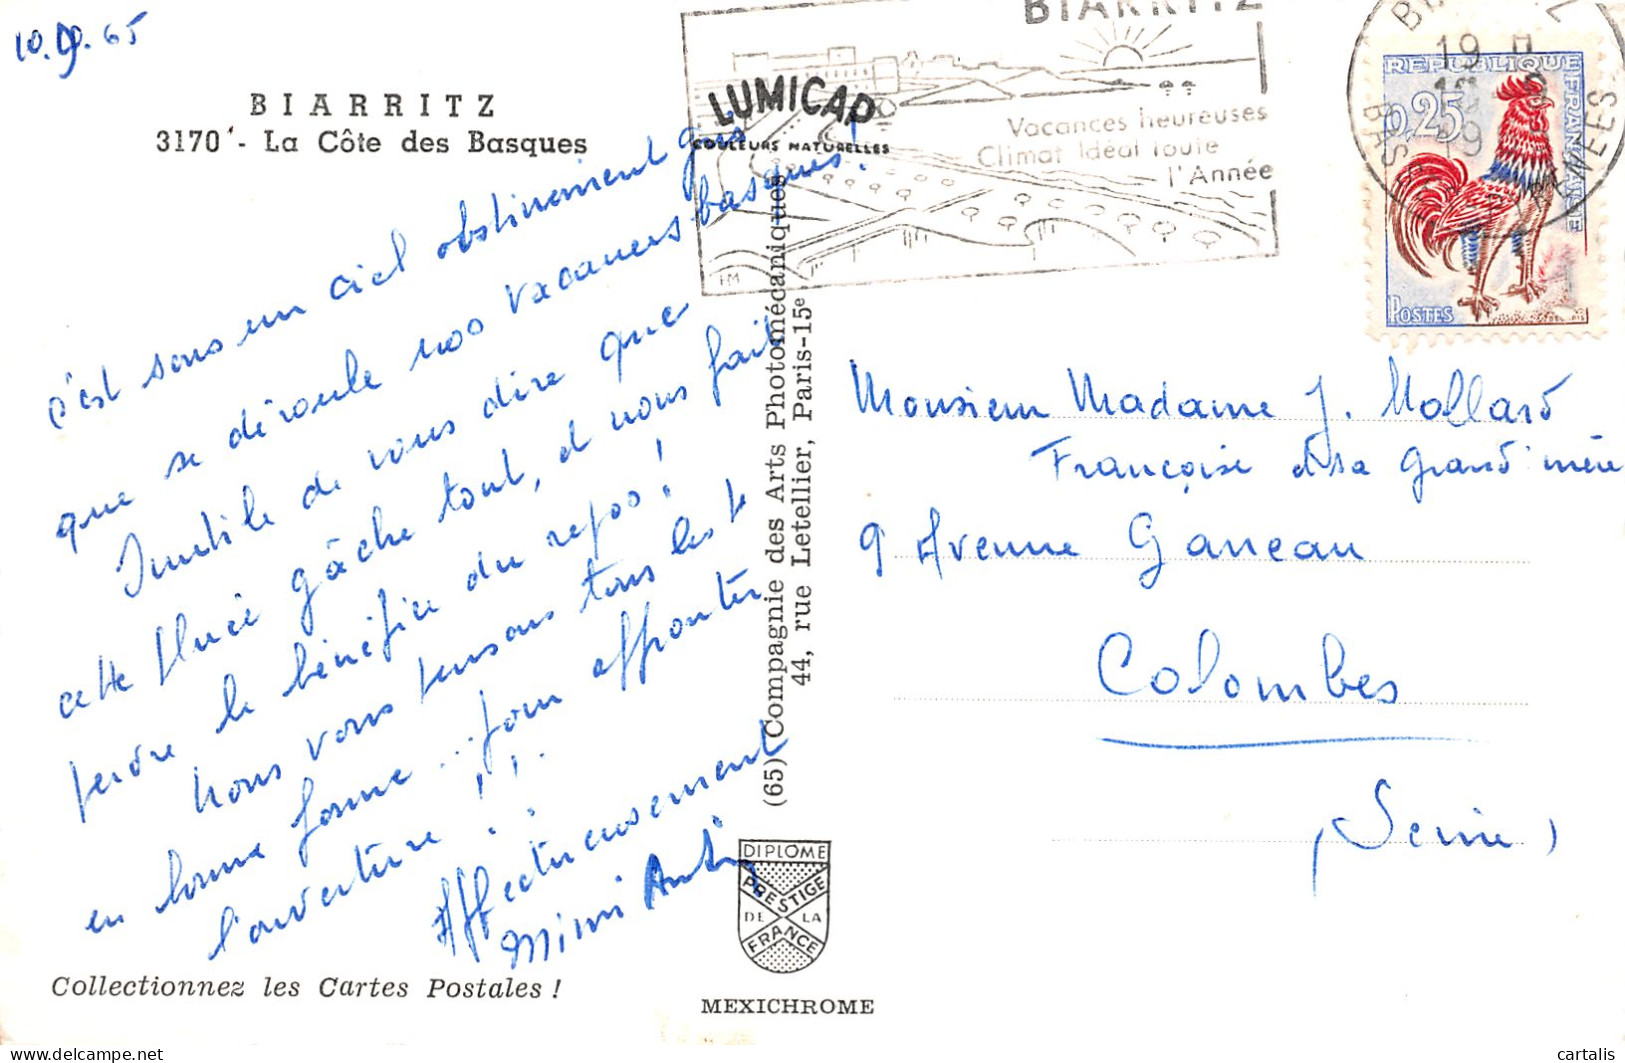 10.9.65
BIARRITZ
3170 - La Côte des Basques
c'est sous un ciel obstinément gris
que se déroule nos vacances basques !
Inutile de vous dire que
cette pluie gâche tout, et nous fait
perdre le bénéfice du repos !
Nous vous pensons tous les
en bonne forme ... pour affronter
l'ouverture !!!
Affectueusement
Mimi
Collectionnez les Cartes Postales !
BIARRITZ
LUMICAP
COULEURS NATURELLES
Vacances heureuses
Climat Idéal toute
l'Année
(65) Compagnie des Arts Photomécaniques
44, rue Letellier, Paris-15e
DIPLOME
PRESTIGE
DE LA
FRANCE
MEXICHROME
REPUBLIQUE FRANÇAISE
0,25
POSTES
19 H
Monsieur Madame J. Mollard
Françoise et sa grand'mère
9 Avenue Ganeau
Colombes
(Seine)
delcampe.net
cartalis